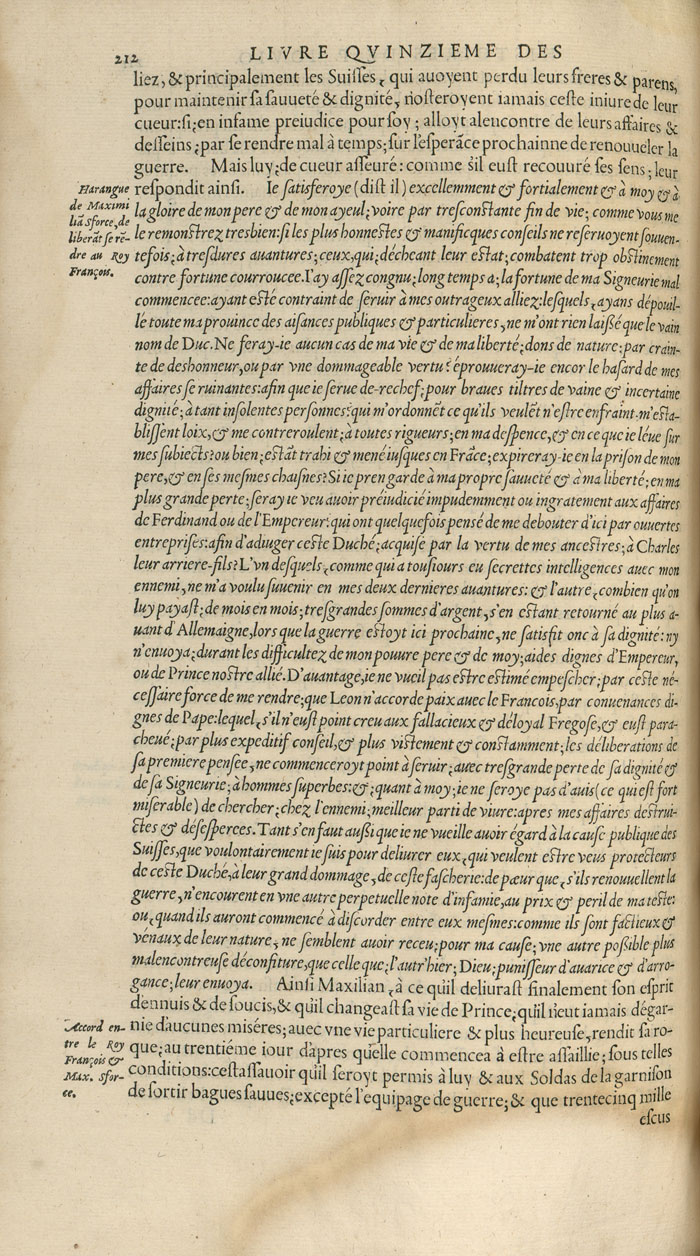 212 LIVRE QVINZIEME DES
liez, & principalement les Suiſſes, qui auoyent perdu leurs freres & parens,
pour maintenir ſa ſauueté & dignité, n'oſteroyent iamais ceſte iniure de leur
cueur: ſi; en infame preiudice pour ſoy; alloyt alencontre de leurs affaires &
deſſeins; par ſe rendre mal à temps; ſur l'eſperãce prochainne de renouueler la
guerre. Mais luy; de cueur aſſeuré: comme s'il euſt recouuré ſes ſens; leur
Harangue de Maximi liã sforce, de liberãt ſe rẽ- dre au Roy François.
reſpondit ainſi. Ie ſatisferoye (diſt il) excellemment & fortialement & à moy & à
la gloire de mon pere & de mon ayeul; voire par treſconſtante fin de vie; comme vous me
le remonſtrez treſbien: ſi les plus honneſtes & manificques conſeils ne reſeruoyent ſouuen-
tefois; à treſdures auantures; ceux, qui; décheant leur eſtat; combatent trop obſtinement
contre fortune courroucee. I'ay aſſez congnu; long temps a; la fortune de ma Signeurie mal
commencee: ayant eſté contraint de ſeruir à mes outrageux alliez: leſquels, ayans dépouil-
lé toute ma prouince des aiſances publiques & particulieres, ne m'ont rien laiſſé que le vain
nom de Duc. Ne feray-ie aucun cas de ma vie & de ma liberté; dons de nature; par crain-
te de deshonneur, ou par vne dommageable vertu? éprouueray-ie encor le haſard de mes
affaires ſe ruinantes: afin que ie ſerue de-rechef; pour braues tiltres de vaine & incertaine
dignité; à tant inſolentes perſonnes: qui m'ordonnẽt ce qu'ils veulẽt n'eſtre enfraint. m'eſta-
bliſſent loix, & me contreroulent; à toutes rigueurs; en ma deſpence, & en ce que ie léue ſur
mes ſubiects? ou bien; eſtãt trahi & mené iuſques en Frãce; expireray-ie en la priſon de mon
pere, & en ſes meſmes chaiſnes? Si ie pren garde à ma propre ſauueté & à ma liberté; en ma
plus grande perte; ſeray ie veu auoir préiudicié impudemment ou ingratement aux affaires
de Ferdinand ou de l'Empereur: qui ont quelquefois penſé de me debouter d'ici par ouuertes
entrepriſes: afin d'adiuger ceſte Duché; acquiſe par la vertu de mes anceſtres; à Charles
leur arriere-fils? L'vn deſquels, comme qui a touſiours eu ſecrettes intelligences auec mon
ennemi, ne m'a voulu ſuuenir en mes deux dernieres auantures: & l'autre, combien qu'on
luy payaſt; de mois en mois; treſgrandes ſommes d'argent, s'en eſtant retourné au plus a-
uant d'Allemaigne, lors que la guerre eſtoyt ici prochaine, ne ſatisfit onc à ſa dignité: ny
n'enuoya; durant les difficultez de mon pouure pere & de moy; aides dignes d'Empereur,
ou de Prince noſtre allié. D'auantage, ie ne vueil pas eſtre eſtimé empeſcher; par ceſte né-
ceſſaire force de me rendre; que Leon n'accorde paix auec le Francois, par conuenances di-
gnes de Pape: lequel, s'il n'euſt point creu aux fallacieux & déloyal Fregoſe, & euſt para-
cheué; par plus expeditif conſeil, & plus viſtement & conſtamment; les déliberations de
ſa premiere penſee, ne commenceroyt point à ſeruir; auec treſgrande perte de ſa dignité &
de ſa Signeurie; à hommes ſuperbes: &; quant à moy; ie ne ſeroye pas d'auis (ce qui eſt fort
miſerable) de chercher; chez l'ennemi; meilleur parti de viure: apres mes affaires deſtrui-
ctes & déſeſperees. Tant s'en faut auſſi que ie ne vueille auoir égard à la cauſe publique des
Suiſſes, que voulontairement ie ſuis pour deliurer eux, qui veulent eſtre veus protecteurs
de ceſte Duché, à leur grand dommage, de ceſte faſcherie: de pœur que, s'ils renouuellent la
guerre, n'encourent en vne autre perpetuelle note d'infamie, au prix & peril de ma teſte:
ou, quand ils auront commencé à diſcorder entre eux meſmes: comme ils ſont factieux &
venaux de leur nature, ne ſemblent auoir receu; pour ma cauſe; vne autre poſſible plus
malencontreuſe déconfiture, que celle que; l'autr'hier; Dieu; puniſſeur d'auarice & d'arro-
gance; leur enuoya. Ainſi Maxilian, à ce qu'il deliuraſt finalement ſon eſprit
d'ennuis & de ſoucis, & qu'il changeaſt ſa vie de Prince; qu'il n'eut iamais dégar-
Accord en- tre le Roy François & Max. sfor- ce.
nie d'aucunes miſéres; auec vne vie particuliere & plus heureuſe, rendit ſa ro-
que; au trentiéme iour d'apres qu'elle commencea à eſtre aſſaillie; ſous telles
conditions: ceſt aſſauoir qu'il ſeroyt permis à luy & aux Soldas de la garniſon
de ſortir bagues ſauues; excepté l'equipage de guerre; & que trentecinq mille
eſcus